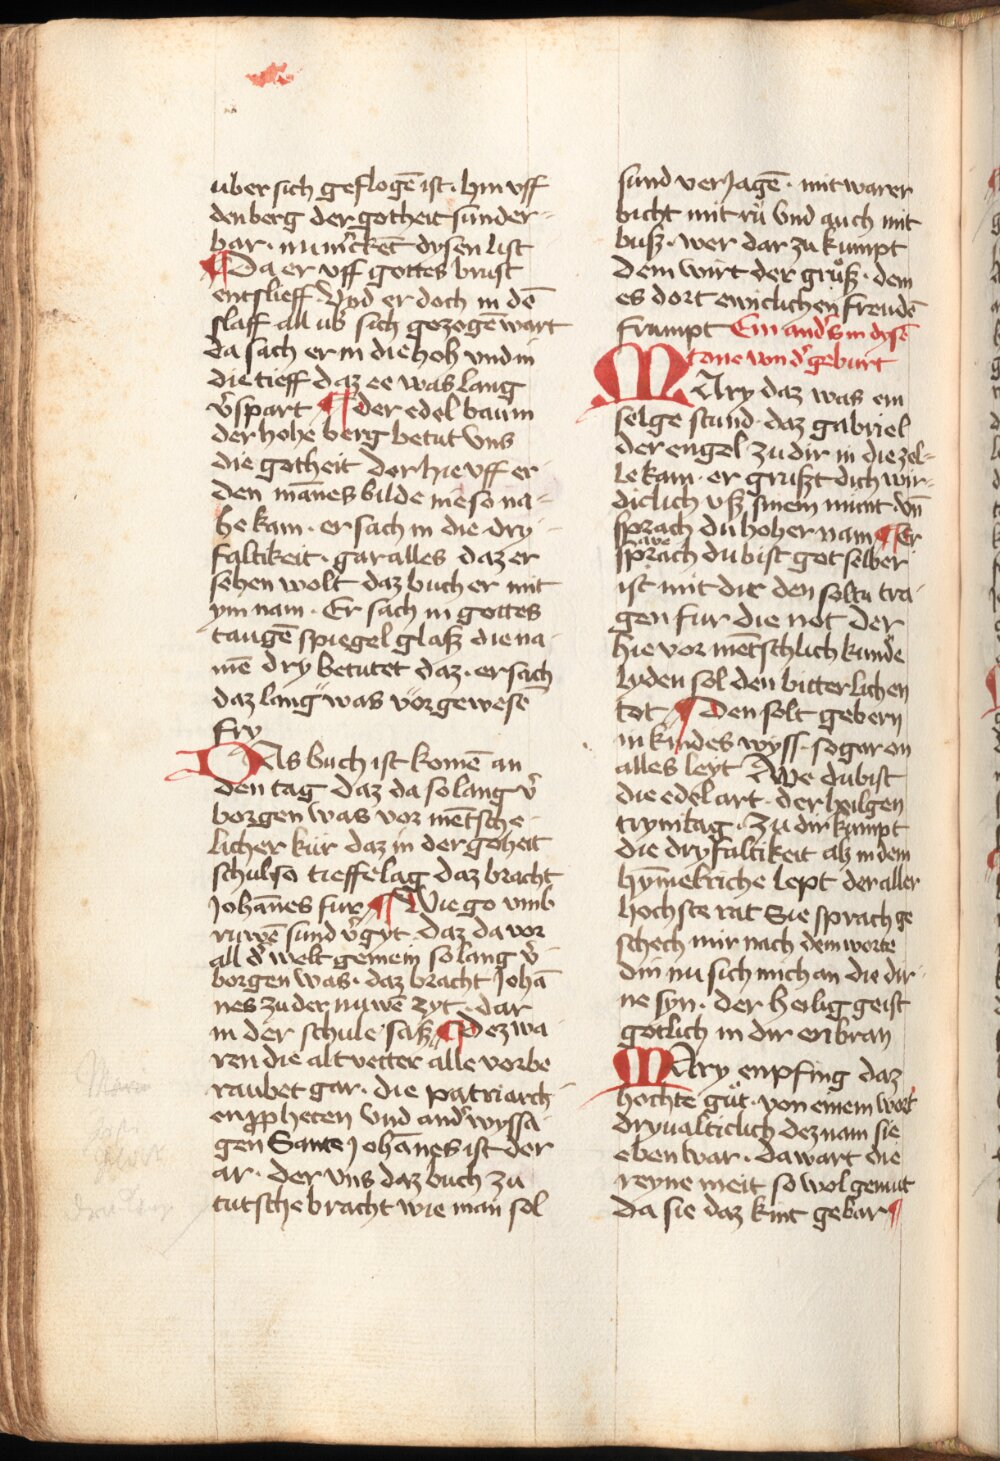 uber sich geflogē ist · hin uff
den berg der gotheit sunder-
bar · nu m̓ckēt dysen list
¶ Da er uff gottes brust
entslieff · Und er doch in dē
slaff all uß sich gezogē wart
da sach er in die hoh und in
die tieff daz ee was lang
v̓spart ¶ der edel baum
der hohe berg betut uns
die gotheit der hie uff er-
den mānes bilde nie so na-
he kam · er sach in die dry-
faltikeit · gar alles daz er
sehen wolt daz buch er mit
ym nam · Er sach in gottes
taugē spiegel glaß die na-
mē dry betutet daz · er sach
daz lang was vor gewesē
fry
Das buch ist komē an
den tag daz da so lang v̓
borgen was vor mētsche-
licher kür daz in der goheit
schul so tieffe lag daz bracht
Johānes fur ¶ Wie go umb
ruwē sund v̓gyt daz da vor
all d̓ welt gemein so lang v̓
borgen was · daz bracht Johā
nes zu der nuwē zyt · dar
in der schule saß ¶ Dez wa-
ren die alt vetter alle vorbe
raubet gar · die patriarch
en ꝓpheten und and̓ wyssa-
gen Sante Johānes ist der
ar · der uns daz buch zu
tutsche bracht wie man sol
sund verjagē · mit warer
bicht mit rů Und auch mit
buß · wer dar zu kumpt
dem wirt der grůß · dem
es dort ewiclichen freudē
frumpt Ein and̓s in dysē
tone von d̓ geburt
Mary daz was ein
selge stund · daz gabriel
der engel zu dir in die zel-
le kam · er grußt dich wir-
diclich uß sinem munt · uñ
sprach du hoher nam ¶ Er
sprach ave du bist got selber
ist mit dir den soltu tra-
gen fur die not der
hie vor mētschlich kunde
lyden sol den bitterlichen
tot ¶ Den solt gebern
in kindes wyss · so gar on
alles leyt Awe du bist
die edel art · der heilgen
trynitag · Zu dir kumpt
die dryfaltikeit alz in dem
hȳmelriche lept der aller
hochste rat Sie sprach ge
schech mir nach dem worte
din nu sich mich an die dir-
ne syn · der heilig geist
gotlich in dir enbran
Mary enpfing daz
hochte gůt · von einem wort
dryualticlich dez nam sie
eben war · da wart die
reyne meit so wol gemut
da sie daz kint gebar ¶